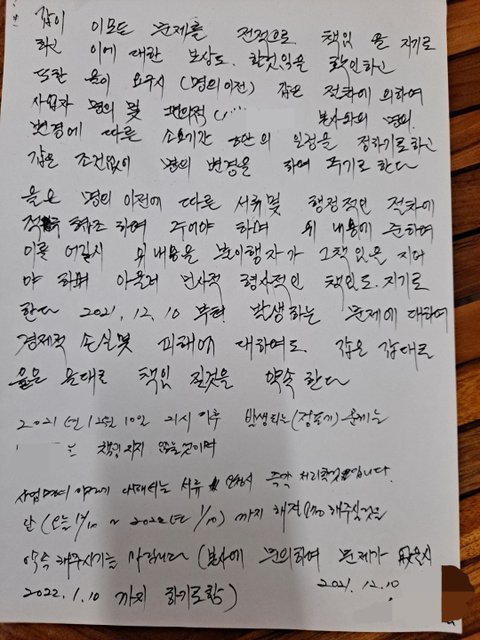 갑이 이모든 문제를 전적으로 책임 을 지기로
하고 이에 대한 보상도 할것임을 확인하고
또한 을이 요구시 (명의이전) 갑은 절차에 의하여
사업자 명의 및 편의점 (... 본사와의 명의
변경에 따른 소요기간 만의 일정을 정하기로하고
갑은 조건없이 명의 변경을 하여 주기로 한다
을은 명의 이전에 따른 서류및 행정적인 절차에
적극 협조 하여 주어야 하며 위 내용에 준하여
이를 어길시 위 내용을 불이행자가 그책임을 지어
야 하며 아울러 민사적 형사적인 책임도 지기로
한다 2021, 12, 10 부터 발생하는 문제에 대하여
경제적 손실및 피해에 대하여도 갑은 갑대로
을은 을대로 책임 질것을 약속 한다
2021년 12월 10일 21시 이후 발생되는 문제는
는 책임지지 않을것이며
사업 서류 즉각 처리 입니다.
단 (오늘 12/10 ~ 2022년 1/10) 까지 해주실것을
약속 해주시기를 바랍니다 (본사에 문의하여 문제가
2022. 1. 10 까지 하기로함) 2021. 12. 10